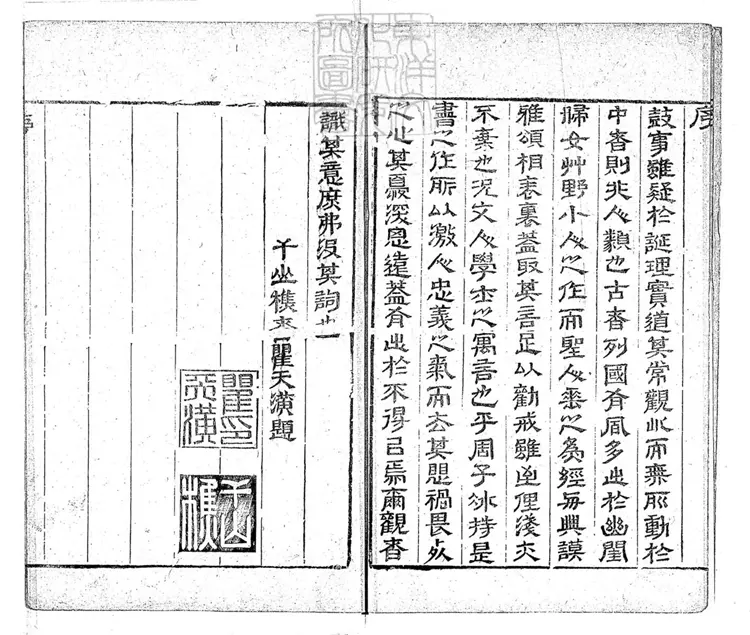 序
鼓事雖疑於誕理實道其常觀此而無所動於
中者則非人類也古者列國有風多出於幽閨
婦女艸野小人之作而聖人垂之為經每與謨
雅頌相表裏蓋取其言足以勸戒雖俚淺夫
不棄也況文人學士之寓言也乎周子冰持是
書之作所以激人忠義之氣而去其愳禍畏死
之心其憂深思遠蓋有出於不得已焉爾觀者
識其意庶弗沒其詞也
千山樵者瞿天潢題
瞿印天潢
千山樵